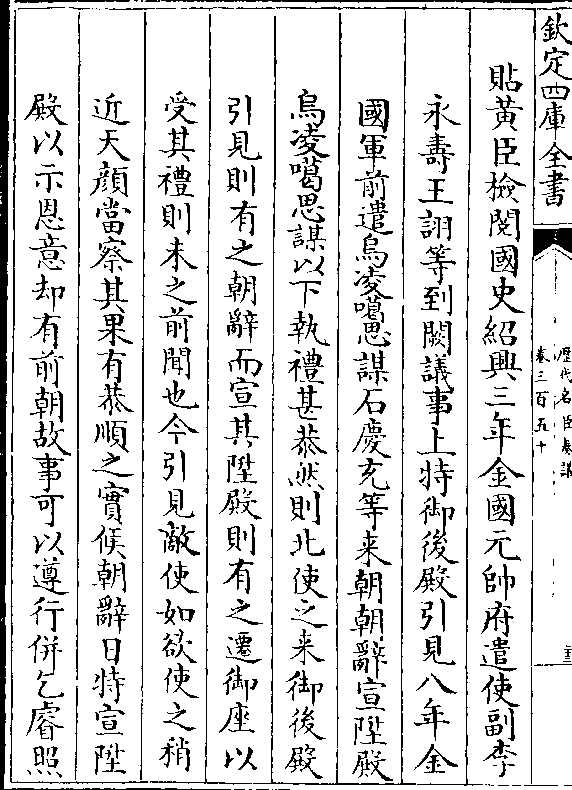 欽定四庫全書
歷代名臣奏議
卷三百五十
貼黃臣檢閱國史紹興三年金國元帥府遣使副李
永壽王詡等到闕議事上特御後殿引見八年金
國軍前遣烏凌噶思謀石慶充等来朝朝辭宣陞殿
烏凌噶思謀以下執禮甚恭然則北使之来御後殿
引見則有之朝辭而宣其陞殿則有之遷御座以
受其禮則未之前聞也今引見敵使如欲使之稍
近天顔當察其果有恭順之實候朝辭日特宣陞
殿以示恩意却有前朝故事可以遵行併乞睿照